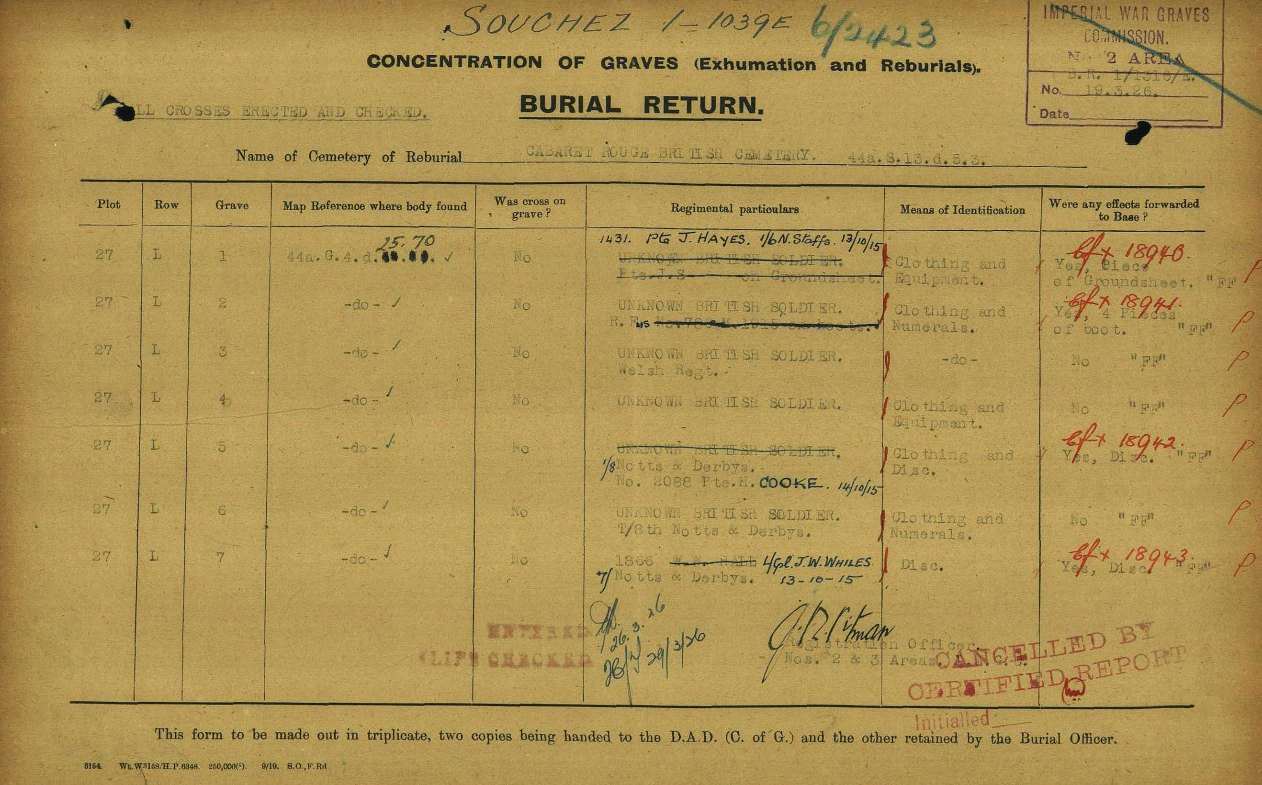 SOUCHEZ 1-1039E 6/2423
IMPERIAL WAR GRAVES
COMMISSION.
No 2 AREA
B.R. 1/1318/E.
No. 19.3.26.
Date
CONCENTRATION OF GRAVES (Exhumation and Reburials).
BURIAL RETURN.
ALL CROSSES ERECTED AND CHECKED.
Name of Cemetery of Reburial CABARET ROUGE BRITISH CEMETERY. 44a.S.15.d.5.3.
Plot Row Grave Map Reference where body found Was cross on grave? Regimental particulars Means of Identification Were any effects forwarded to Base?
1431. Pte J. HAYES. 1/6 N. Staffs. 13/10/15
27 L 1 44a.G.4.d. 25.70 ✓ No UNKNOWN BRITISH SOLDIER. Clothing and Yes, Piece Ef x 18940.
Pte.J.S on Groundsheet. Equipment. of Groundsheet. "FF" P
27 L 2 -do- ✓ No UNKNOWN BRITISH SOLDIER. Clothing and Yes, 4 Pieces Ef x 18941.
R.Fus Numerals. of boot. "FF" P
27 L 3 -do- ✓ No UNKNOWN BRITISH SOLDIER. -do- No "FF" P
Welsh Regt.
27 L 4 -do- ✓ No UNKNOWN BRITISH SOLDIER. Clothing and No "FF" P
Equipment.
27 L 5 -do- ✓ No UNKNOWN BRITISH SOLDIER. Clothing and Yes, Disc. "FF" Ef x 18942. P
1/8 Notts & Derbys. Disc.
No. 2088 Pte.H. COOKE. 14/10/15
27 L 6 -do- ✓ No UNKNOWN BRITISH SOLDIER. Clothing and No "FF" P
1/8th Notts & Derbys. Numerals.
27 L 7 -do- ✓ No 1866 W.W. HALL L/Cpl. J.W. WHILES Disc. Yes, Disc. "FF" Ef x 18943. P
7/ Notts & Derbys. 13-10-15
26.3.26
29/3/26
ENTERED
LIFS CHECKED
J.R. Pitman
Registration Officer
Nos. 2 & 3 Areas.
CANCELLED BY
CERTIFIED REPORT
Initialled
This form to be made out in triplicate, two copies being handed to the D.A.D. (C. of G.) and the other retained by the Burial Officer.
8154. Wt.W3158/H.P.6348. 250,000(2). 9/19. S.O.,F.Rd.